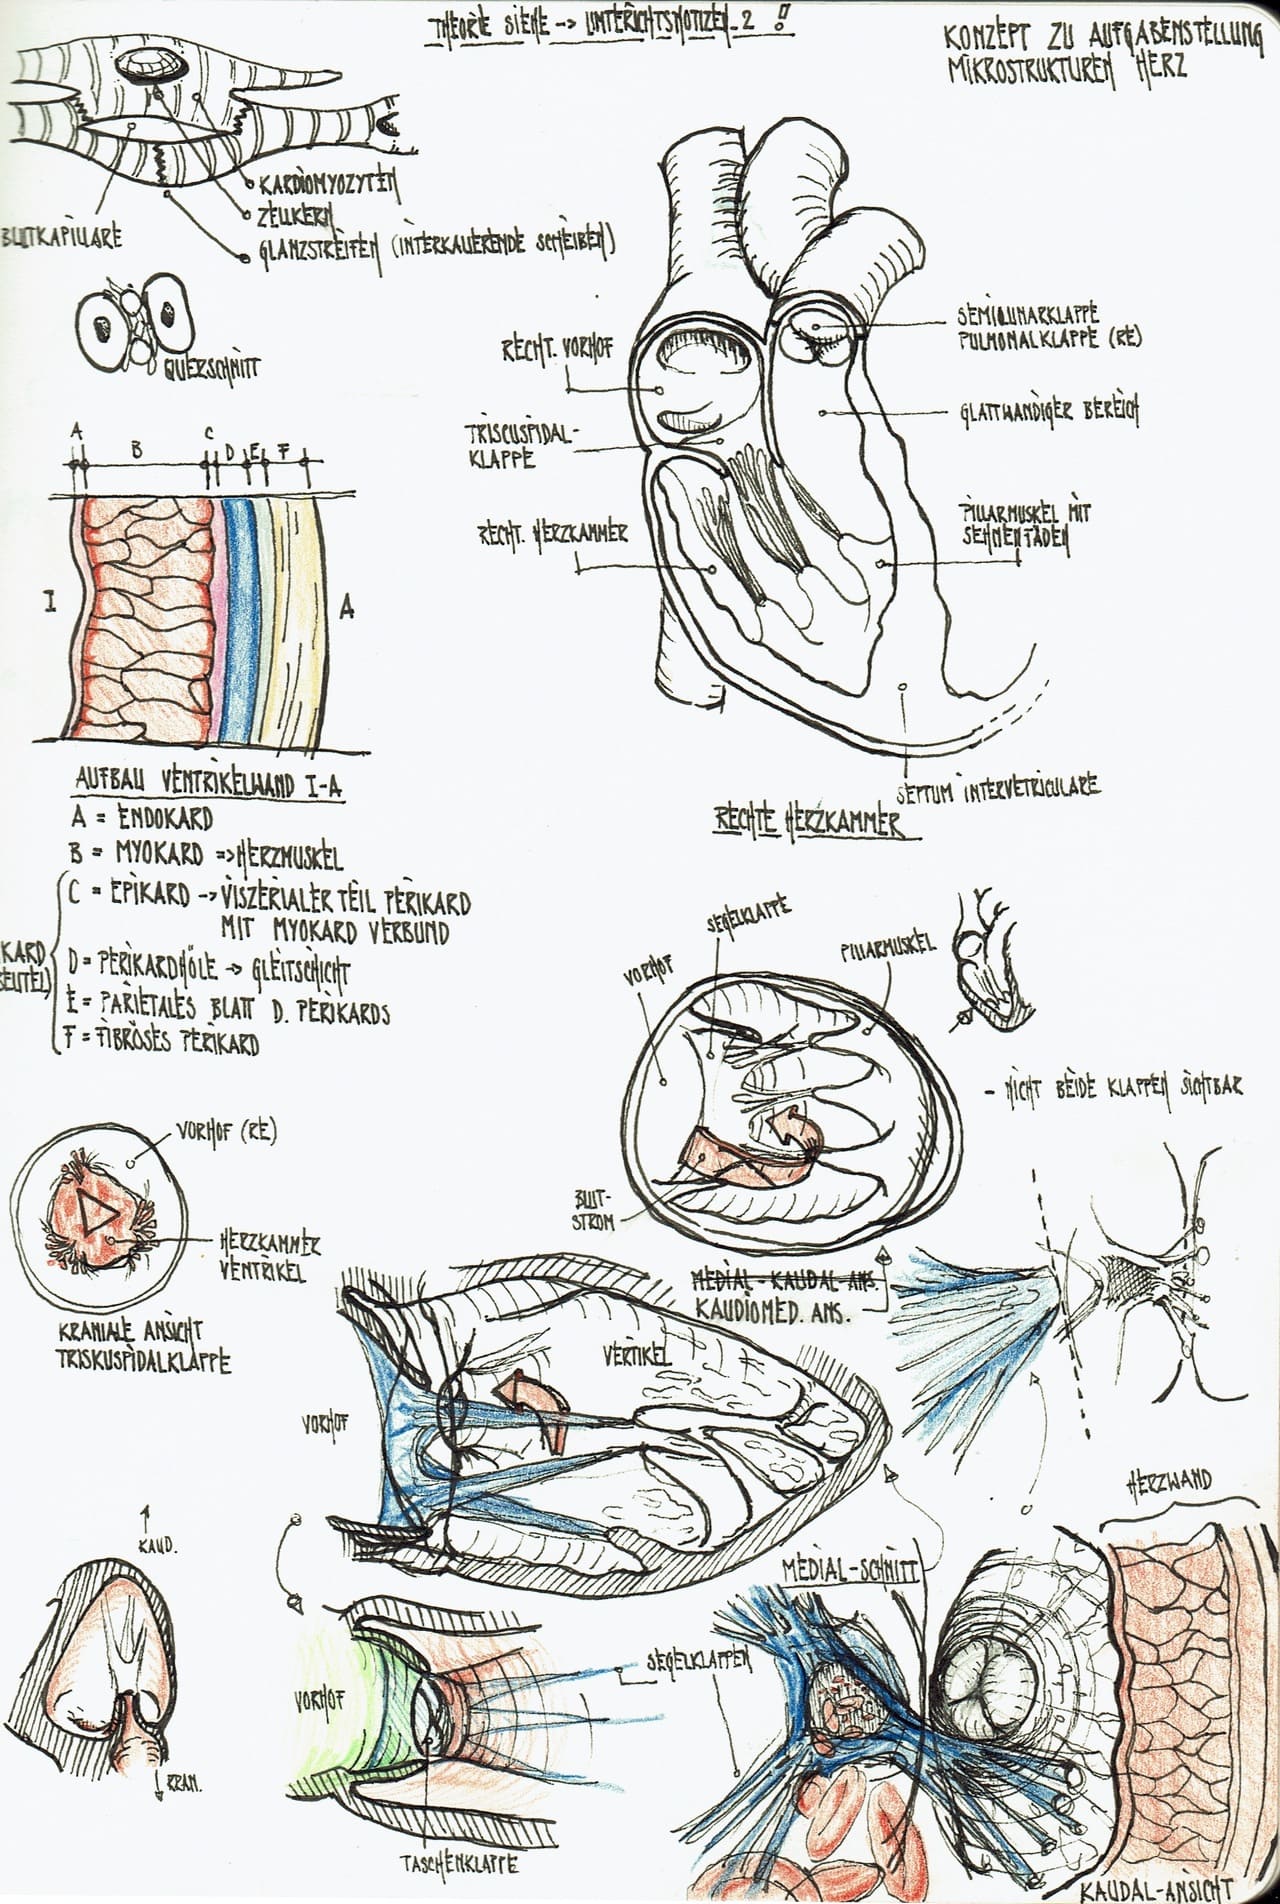 THEORIE SIEHE -> UNTERICHTSNOTIZEN_2 !
KONZEPT ZU AUFGABENSTELLUNG
MIKROSTRUKTUREN HERZ
KARDIOMYOZYTEN
ZELLKERN
GLANZSTREIFEN (INTERKALIERENDE SCHEIBEN)
BLUTKAPILLARE
QUERSCHNITT
A B C D E F
I A
AUFBAU VENTRIKELWAND I-A
A = ENDOKARD
B = MYOKARD => HERZMUSKEL
C = EPIKARD -> VISZERIALER TEIL PERIKARD
MIT MYOKARD VERBUND
D = PERIKARDHÖLE -> GLEITSCHICHT
E = PARIETALES BLATT D. PERIKARDS
F = FIBRÖSES PERIKARD
KARD
BEUTEL)
RECHT. VORHOF
TRISCUSPIDAL-
KLAPPE
RECHT. HERZKAMMER
SEMILUNARKLAPPE
PULMONALKLAPPE (RE)
GLATTWANDIGER BEREICH
PILLARMUSKEL MIT
SEHNENFÄDEN
SEPTUM INTERVETRICULARE
RECHTE HERZKAMMER
SEGELKLAPPE
VORHOF
PILLARMUSKEL
BLUT-
STROM
- NICHT BEIDE KLAPPEN SICHTBAR
MEDIAL-KAUDAL-ANS.
KAUDIOMED. ANS.
VORHOF (RE)
HERZKAMMER
VENTRIKEL
KRANIALE ANSICHT
TRISKUSPIDALKLAPPE
VERTIKEL
VORHOF
MEDIAL-SCHNITT
HERZWAND
KAUD.
KRAN.
VORHOF
SEGELKLAPPEN
TASCHENKLAPPE
KAUDAL-ANSICHT